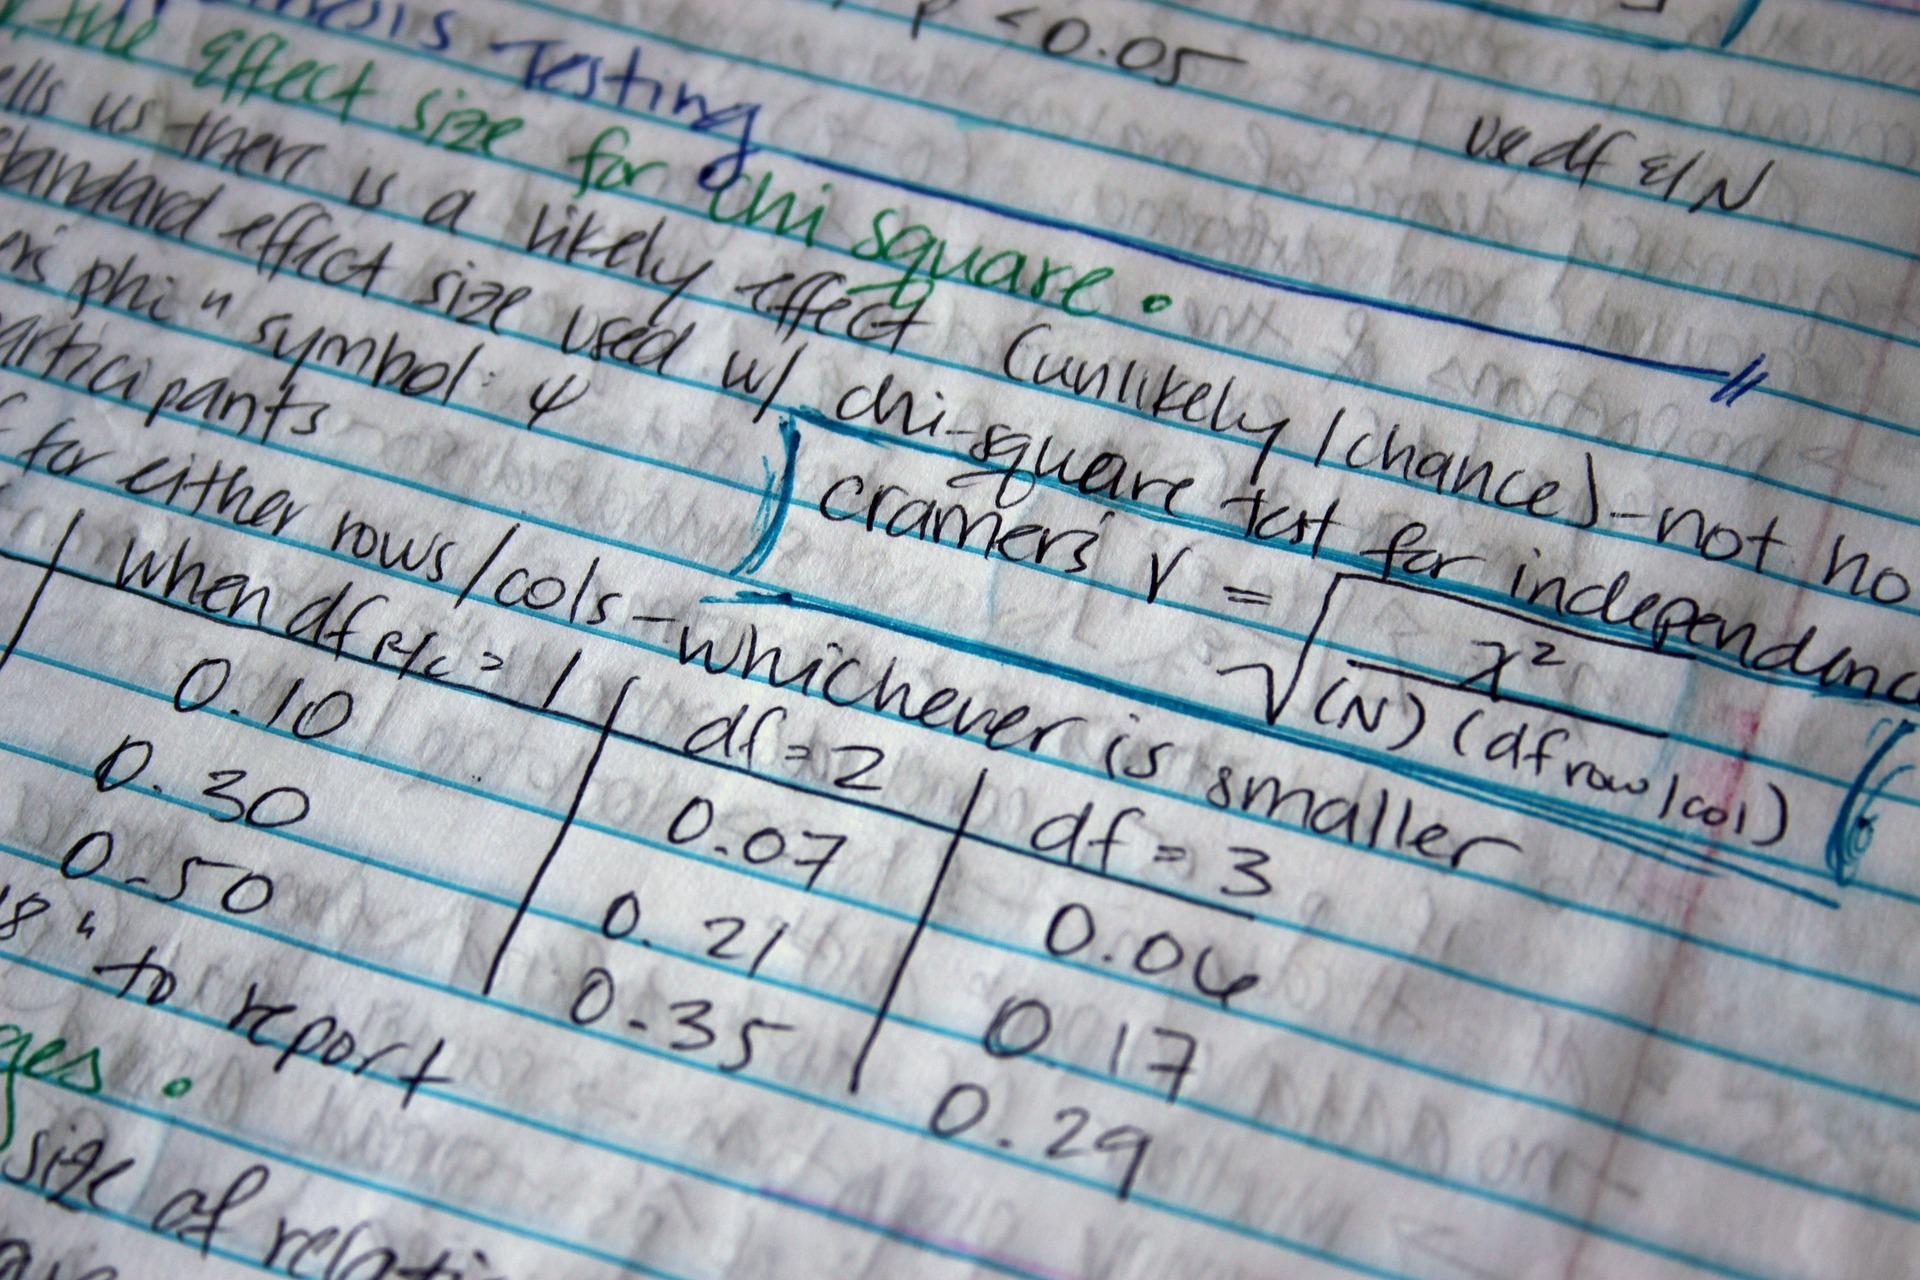 p < 0.05
use df & N
Testing
the effect size for chi square.
us there is a likely effect (unlikely/chance) - not no
standard effect size used w/ chi-square test for independenc
phi" symbol: φ
cramer's V = √ χ² / (N) (df row/col)
participants
for either rows/cols - whichever is smaller
when df R/C = 1 df = 2 df = 3
0.10 0.07 0.06
0.30 0.21 0.17
0.50 0.35 0.29
" to report
size of